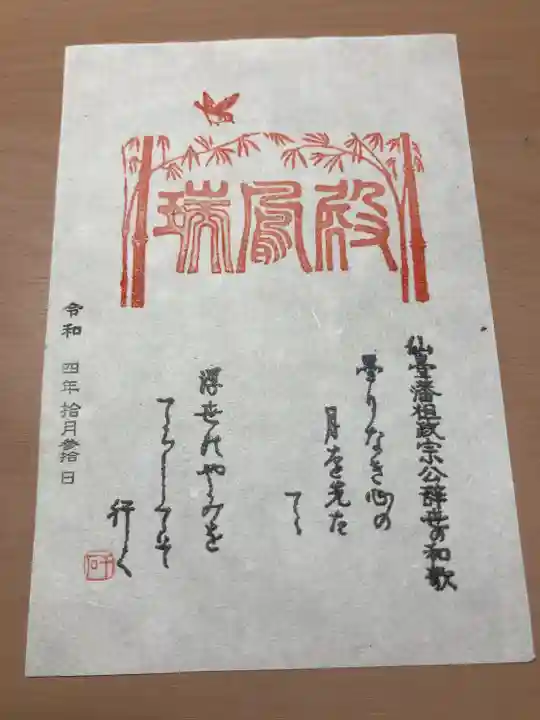 瑞鳳殿
仙臺藩祖政宗公辞世の和歌
曇りなき心の
月を先だ
てゝ
浮世のやみを
てらしてぞ
行く
令和 四年 拾月 参拾日